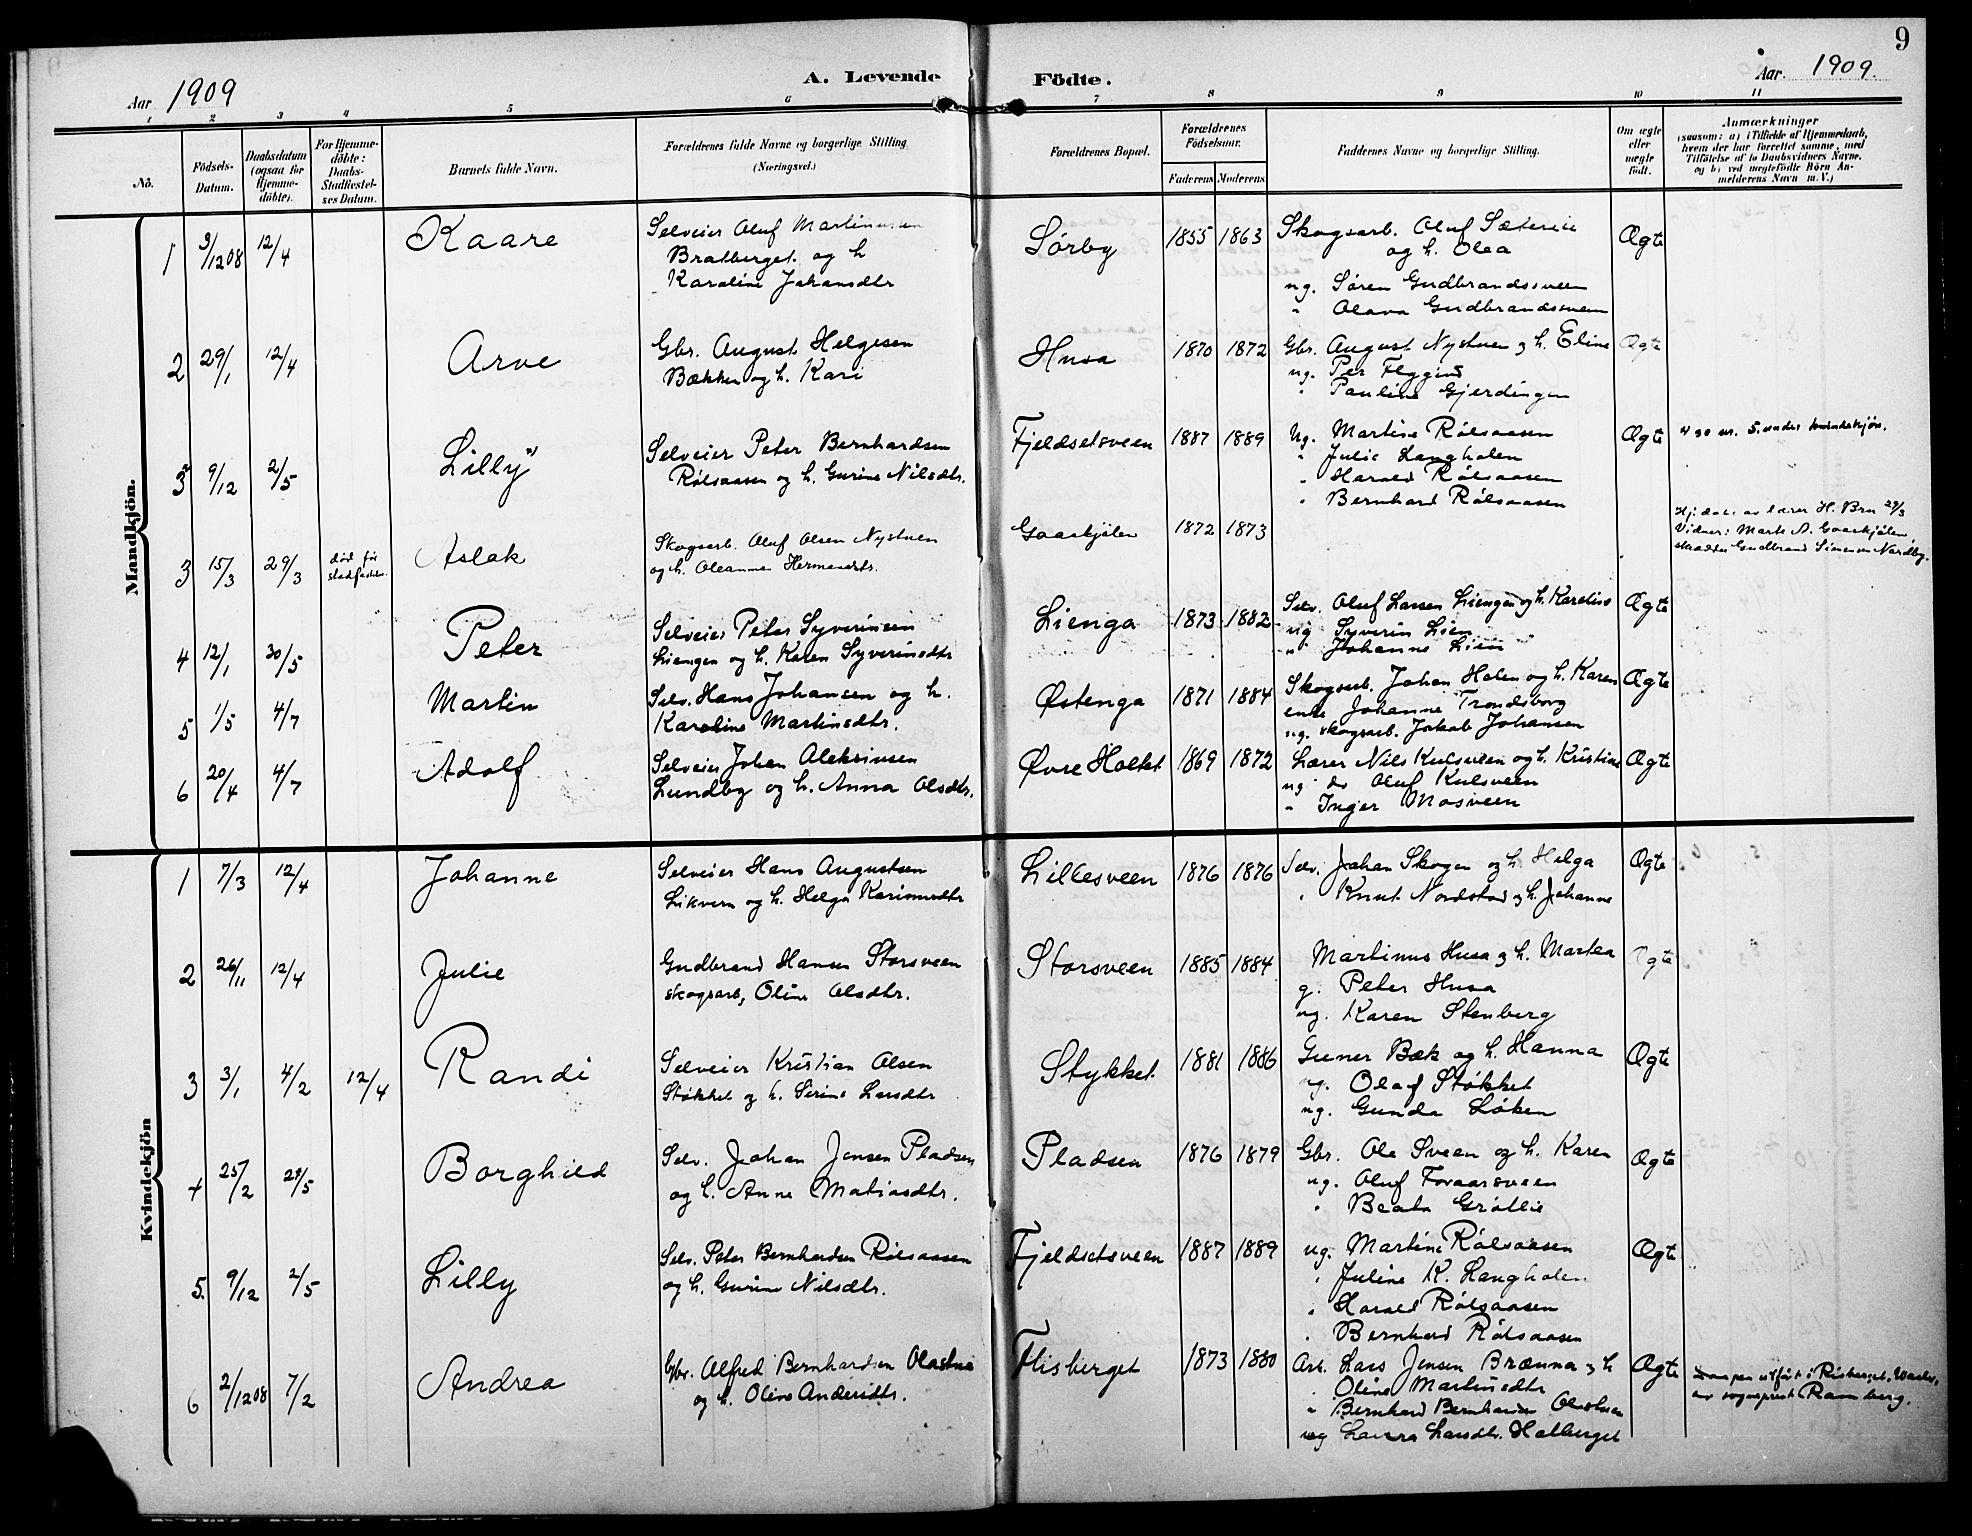 9
Aar 1909
A. Levende Födte.
Aar. 1909.
1 2 3 4 5 6 7 8 9 10 11
No.
Födsels-Datum.
Daabsdatum (ogsaa for Hjemme-döbte).
For Hjemme-döbte: Daabs-Stadfæstel-ses Datum.
Barnets fulde Navn.
Forældrenes fulde Navne og borgerlige Stilling (Næringsvei.)
Forældrenes Bopæl.
Forældrenes Födselsaar.
Faderens Moderens
Faddernes Navne og borgerlige Stilling.
Om ægte eller uægte födt.
Anmærkninger
(saasom: a) i Tilfælde af Hjemmedaab,
hvem der har forrettet samme, med
Tilföielse af to Daabsvidners Navne,
og b) ved uægtefödte Börn An-
melderens Navn m. V.)
Mandkjön.
1 9/12 08 12/4 Kaare
Selveier Oluf Martinusen
Bratberget og h
Karoline Johansdtr
Sørby 1855 1863
Skogsarb. Oluf
og h. Olea
ug. Søren Gudbrandssveen
" Olava Gudbrandssveen
Ægte
2 29/1 12/4 Arve
Gbr. August Helgesen
Bækken og h. Kari
Husa 1870 1872
Gbr. August Nystuen og h. Eline
ug. Per Flygind
" Pauline Gjerdingen
Ægte
3 9/12 2/5 Lilly"
Selveier Peter Bernhardsen
Rölsaasen og h. Gurine Nilsdtr.
Fjeldsetsveen 1887 1889
Ug. Martine Rölsaasen
" Julie Langholen
" Harald Rölsaasen
" Bernhard Rölsaasen
Ægte
nr. 5 under kvindekjön.
3 15/3 29/3 död før stadfæstelse. Aslak
Skogsarb. Oluf Olsen Nystuen
og h. Oleanna Hermansdtr.
Gaaskjölen 1872 1873
Hj.døbt av lærer H. Bru 29/3
Vidner: Marte A. Gaaskjölen,
Gudbrand Simensen Nordby.
4 12/1 30/5 Peter
Selveier Peter Syverinsen
Liengen og h. Karen Syverinsdtr
Lienga 1873 1882
Selv. Oluf Larsen Liengen og h. Karoline
ug Syverin Lien
" Johanne Lien
Ægte
5 1/5 4/7 Martin
Selv. Hans Johansen og h.
Karoline Martinsdtr.
Østenga 1871 1884
Skogsarb. Johan Holen og h. Karen
enke Johanne Trondsborg
ug. skogsarb. Jakob Johansen
Ægte
6 20/4 4/7 Adolf
Selveier Johan Aleksinsen
Lundby og h. Anna Olsdtr.
Øvre Holtet 1869 1872
Lærer Nils Kulsveen og h. Kristine
ug do Oluf Kulsveen
" Inger Mosveen
Ægte
Kvindekjön
1 7/3 12/4 Johanne
Selveier Hans Augustsen
Likvern og h. Helga Karinusdtr
Lillesveen 1876 1876
Selv. Johan Skogen og h. Helga
" Knut Nordstad og h. Johanne
Ægte
2 26/11 12/4 Julie
Gudbrand Hansen Storsveen
skogsarb, Oline Olsdtr.
Storsveen 1885 1884
Martinus Husa og h. Martea
g. Peter Husa
ug. Karen Stenberg
Ægte
3 3/1 4/2 12/4 Randi
Selveier Kristian Olsen
Støkket og h. Serine Larsdtr
Stykket 1881 1886
Guner Bæk og h. Hanna
ug. Olaf Støkket
ug. Gunda Løken
Ægte
4 25/2 28/5 Borghild
Selv. Johan Jensen Pladsen
og h. Anne Matiasdtr.
Pladsen 1876 1879
Gbr. Ole Sveen og h. Karen
ug. Oluf Foraarsveen
" Beata Grøllie
Ægte
5. 9/12 2/5 Lilly
Selv. Peter Bernhardsen Rölsaasen
og h. Gurine Nilsdtr.
Fjeldsetsveen 1887 1889
ug. Martine Rölsaasen
" Juline K. Langholen
" Harald Rölsaasen
" Bernhard Rölsaasen
Ægte
6 2/12 08 7/2 Andrea
Gbr. Alfred Bernhardsen Olastua
og h. Oline Andersdtr.
Flisberget 1873 1880
Arb. Lars Jensen Brænna og h
" Oline Martinsdtr
" Bernhard Bernhardsen Olastuen
ug Laura Larsdtr. Halberget
Ægte
Daapen utført i Risberget, Vaaler,
av sogneprest Ramberg.